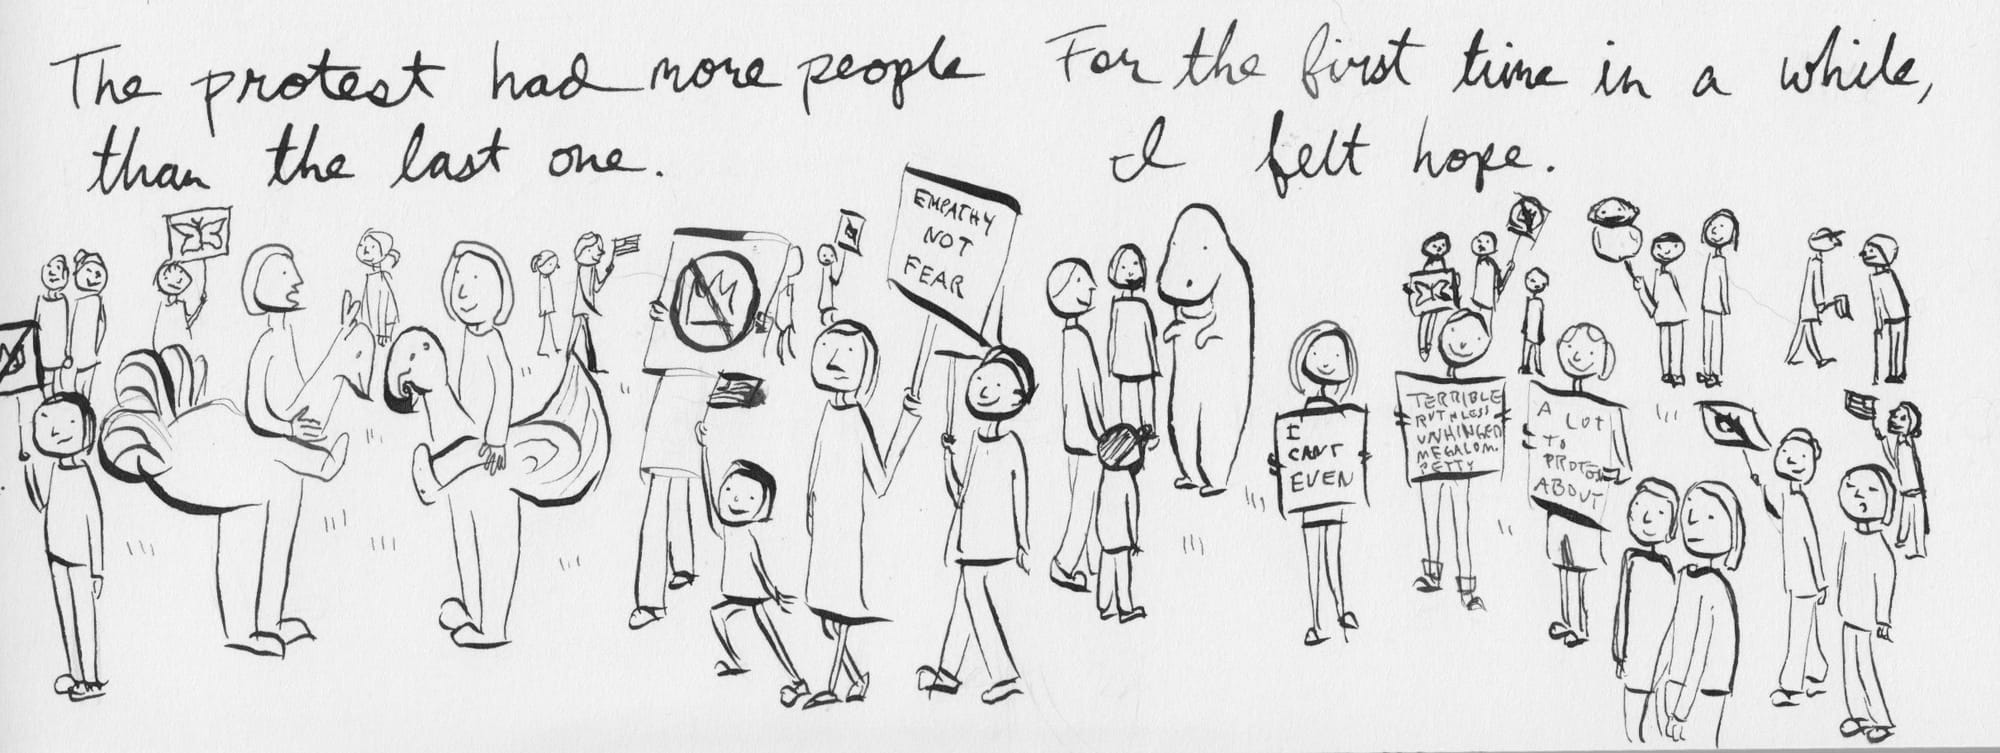 The protest had more people
than the last one.
For the first time in a while,
I felt hope.
EMPATHY
NOT
FEAR
I
CAN'T
EVEN
TERRIBLE
RUTHLESS
UNHINGED
MEGALOM.
PETTY
A LOT
TO
PROTEST
ABOUT